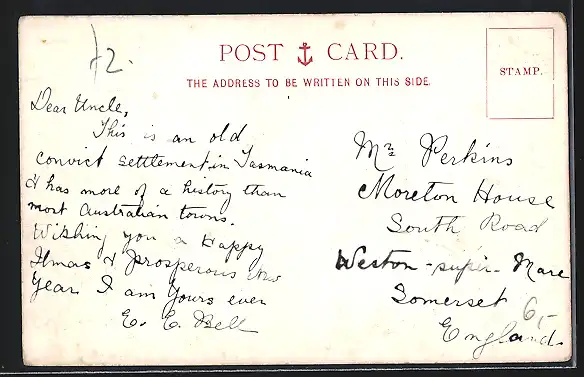 12.
POST CARD.
THE ADDRESS TO BE WRITTEN ON THIS SIDE.
STAMP.
Dear Uncle,
This is an old
convict settlement in Tasmania
& has more of a history than
most Australian towns.
Wishing you a Happy
Xmas & prosperous New
Year I am Yours ever
E. E. Bell
Mr Perkins
Moreton House
South Road
Weston-super-Mare
Somerset
England.
6,-